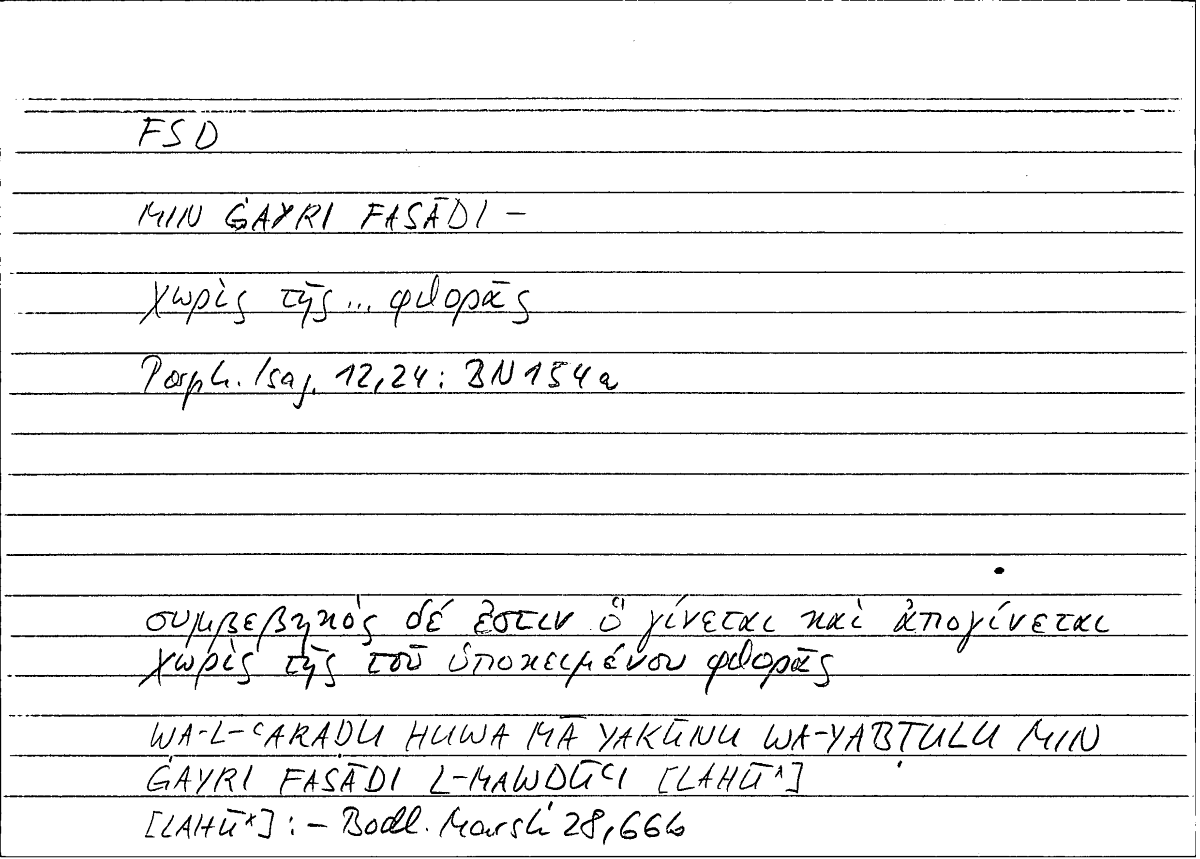 FSD
MIN ĠAYRI FASĀDI –
χωρὶς τῆς ... φθορᾶς
Porph. Isag. 12,24: BN 154a
συμβεβηκὸς δέ ἐστιν ὃ γίνεται καὶ ἀπογίνεται
χωρὶς τῆς τοῦ ὑποκειμένου φθορᾶς
WA-L-ʿARADU HUWA MĀ YAKŪNU WA-YABṬULU MIN
ĠAYRI FASĀDI L-MAWDŪʿI [LAHŪ*]
[LAHŪ*] : – Bodl. Marsh 28,66b